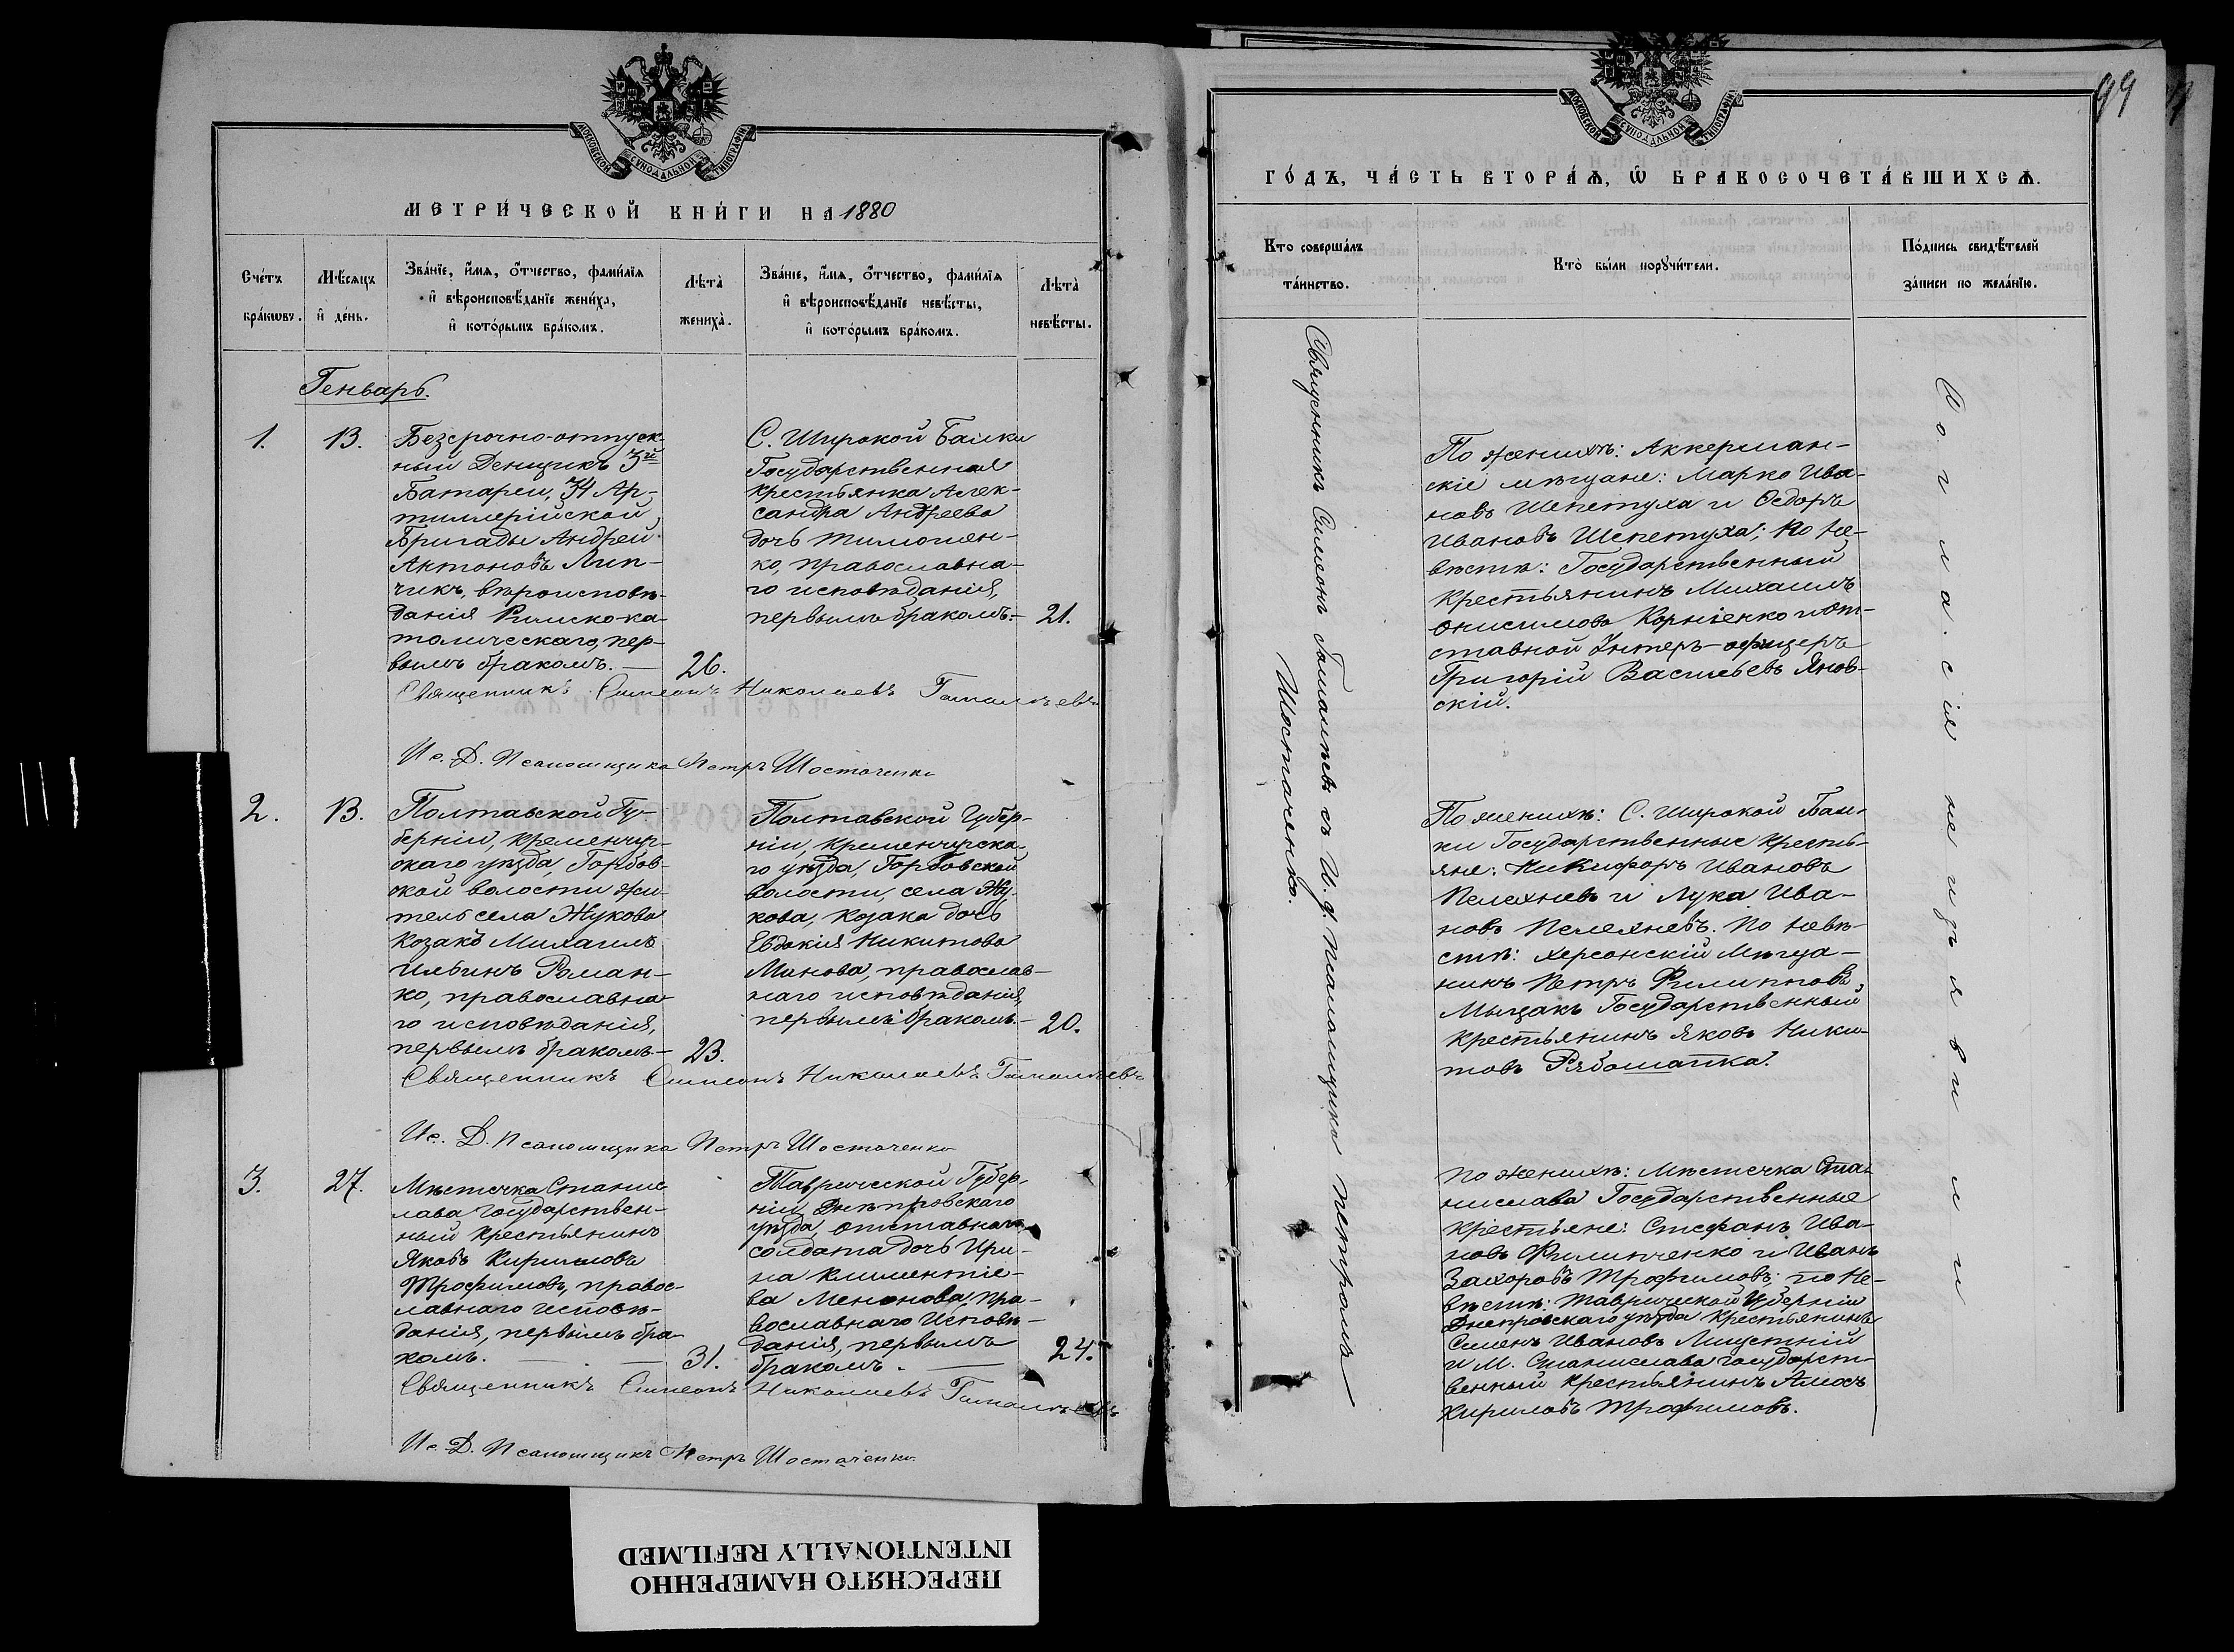 МОСКОВСКОЙ СѴНОДАЛЬНОЙ ТИПОГРАФІИ
МЕТРИ́ЧЕСКОЙ КНИ́ГИ НА 1880
Сче́тъ бра́кѡвъ.
Мѣ́сяцъ и҆ де́нь.
Зва́нїе, и҆́мѧ, ѻ҆́тчество, фами́лїѧ
и҆ вѣроисповѣ́данїе жениха̀,
и҆ кото́рымъ бра́комъ.
Лѣта̀ жениха̀.
Зва́нїе, и҆́мѧ, ѻ҆́тчество, фами́лїѧ
и҆ вѣроисповѣ́данїе невѣ́сты,
и҆ кото́рымъ бра́комъ.
Лѣта̀ невѣ́сты.
Генварь.
1.
13.
Безсрочно-отпуск-
ный Денщикъ 3й
Батареи, 34 Ар-
тиллерійской
Бригады Андрей
Антоновъ Лип-
чикъ, вѣроисповѣ-
данія Римско-ка-
толическаго, пер-
вымъ бракомъ. —
26.
С. Широкой Балки
Государственная
крестьянка Алек-
сандра Андреева
дочь Тимошен-
ко, православна-
го исповѣданія,
первымъ бракомъ. —
21.
Священникъ Симеонъ Николаевъ Гамалѣевъ
Ис. Д. Псаломщика Петръ Шостаченко
2.
13.
Полтавской Гу-
берніи, Кременчуг-
скаго уѣзда, Горбов-
ской волости жи-
тель села Жукова
Козакъ Михаилъ
Ильинъ Роман-
ко, православна-
го исповѣданія,
первымъ бракомъ. —
23.
Полтавской Губер-
ніи, Кременчугска-
го уѣзда, Горбовской
волости, села Жу-
кова, Козака дочь
Евдокія Никитова
Минова, православ-
наго исповѣданія,
первымъ бракомъ. —
20.
Священникъ Симеонъ Николаевъ Гамалѣевъ
Ис. Д. Псаломщика Петръ Шостаченко
3.
27.
Мѣстечка Станис-
лава государствен-
ный крестьянинъ
Яковъ Кириловъ
Трофимовъ, правос-
лавнаго исповѣ-
данія, первымъ бра-
комъ. —
31.
Таврической Губер-
ніи Днѣпровскаго
уѣзда, отставнаго
солдата дочь Ири-
на Климентіе-
ва Менонова, пра-
вославнаго исповѣ-
данія, первымъ
бракомъ. —
24.
Священникъ Симеонъ Николаевъ Гамалѣевъ
Ис. Д. Псаломщикъ Петръ Шостаченко
99
МОСКОВСКОЙ СѴНОДАЛЬНОЙ ТИПОГРАФІИ
ГО́ДЪ, ЧА́СТЬ ВТОРА́Ѧ, Ѽ БРАКОСОЧЕТА́ВШИХСѦ.
Кто соверша́лъ
та́инство.
Кто̀ бы́ли порꙋчи́тели.
По́дпись свидѣ́телей
за́писи по жела́нїю.
Священникъ Симеонъ Гамалѣевъ съ И. д. псаломщика Петромъ
Шостаченко.
По женихѣ: Аккерман-
скіе мѣщане: Марко Ива-
новъ Шепетуха и Ѳедоръ
Ивановъ Шепетуха; по не-
вѣстѣ: Государственный
крестьянинъ Михаилъ
Онисимовъ Корніенко и от-
ставной Унтеръ-офицеръ
Григорій Васильевъ Янов-
скій.
По женихѣ: С. Широкой Бал-
ки Государственные кресть-
яне: Никифоръ Ивановъ
Пелехневъ и Лука Ива-
новъ Пелехневъ. По невѣ-
стѣ: Херсонскій мѣща-
нинъ Петръ Филипповъ
Мыцакъ Государственный
крестьянинъ Яковъ Ники-
товъ Рябошапка.
По женихѣ: Мѣстечка Ста-
нислава Государственные
крестьяне: Стефанъ Ива-
новъ Филипченко и Иванъ
Захоровъ Трофимовъ; по не-
вѣстѣ: Таврической Губерніи
Днепровскаго уѣзда крестьянинъ
Семенъ Ивановъ
и М. Станислава государст-
венный крестьянинъ
Кириловъ Трофимовъ.
не изъявили
ПЕРЕСНЯТО НАМЕРЕННО
INTENTIONALLY REFILMED